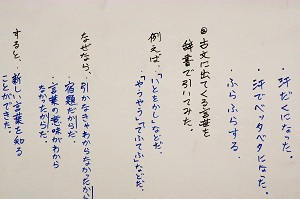 ・汗だくになった。
・汗でベッタベタになった。
・ふらふらする。
古文に出てくる言葉を
辞書で引いてみた。
例えば、「いとをかし」などだ。
「やうやう」「てふてふ」などだ。
なぜなら、引かなきゃわからなかったから
・宿題だからだ。
・言葉の意味がわから
なかったからだ。
すると、新しい言葉を知る
ことができた。